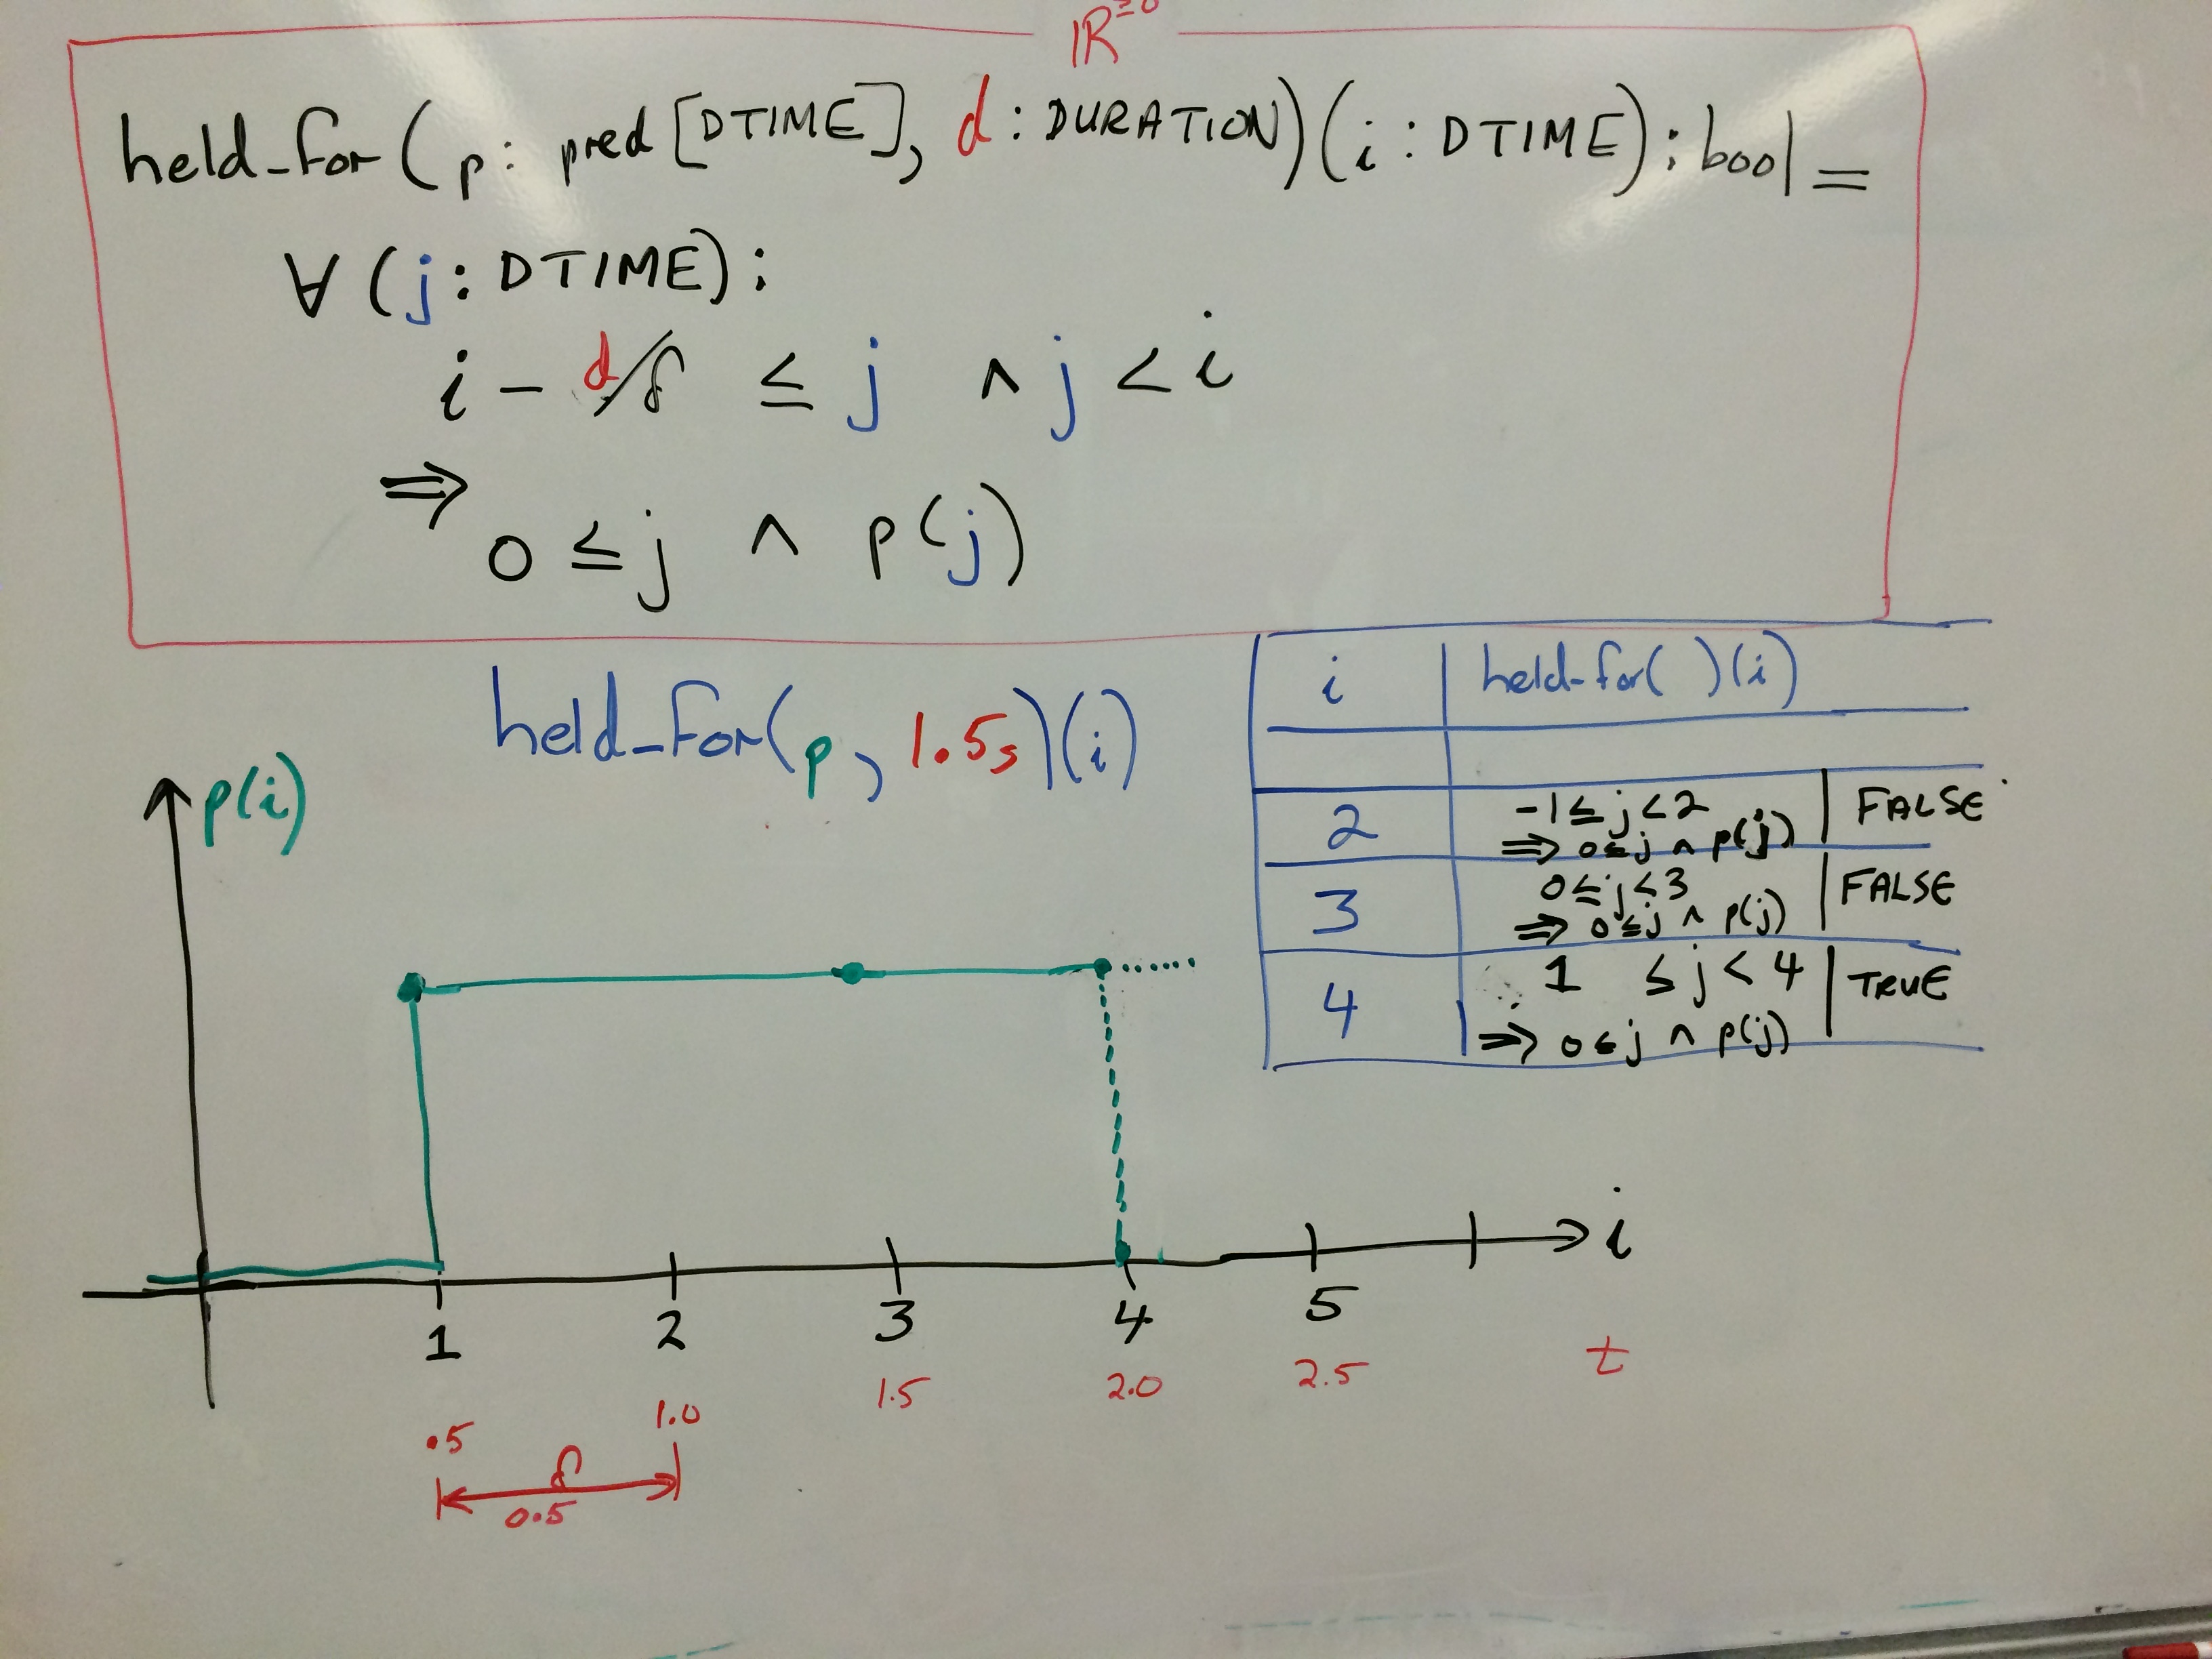 ℝ≥0
held_for(p: pred[DTIME], d: DURATION)(i: DTIME): bool =
∀(j: DTIME):
i - d/δ ≤ j ∧ j < i
⇒
0 ≤ j ∧ p(j)
held_for(p, 1.5s)(i)
i held-for( )(i)
2 -1 ≤ j < 2 FALSE
⇒ 0 ≤ j ∧ p(j)
3 0 ≤ j < 3 FALSE
⇒ 0 ≤ j ∧ p(j)
4 1 ≤ j < 4 TRUE
⇒ 0 ≤ j ∧ p(j)
p(i)
i
1 2 3 4 5
t
.5 1.0 1.5 2.0 2.5
δ
0.5